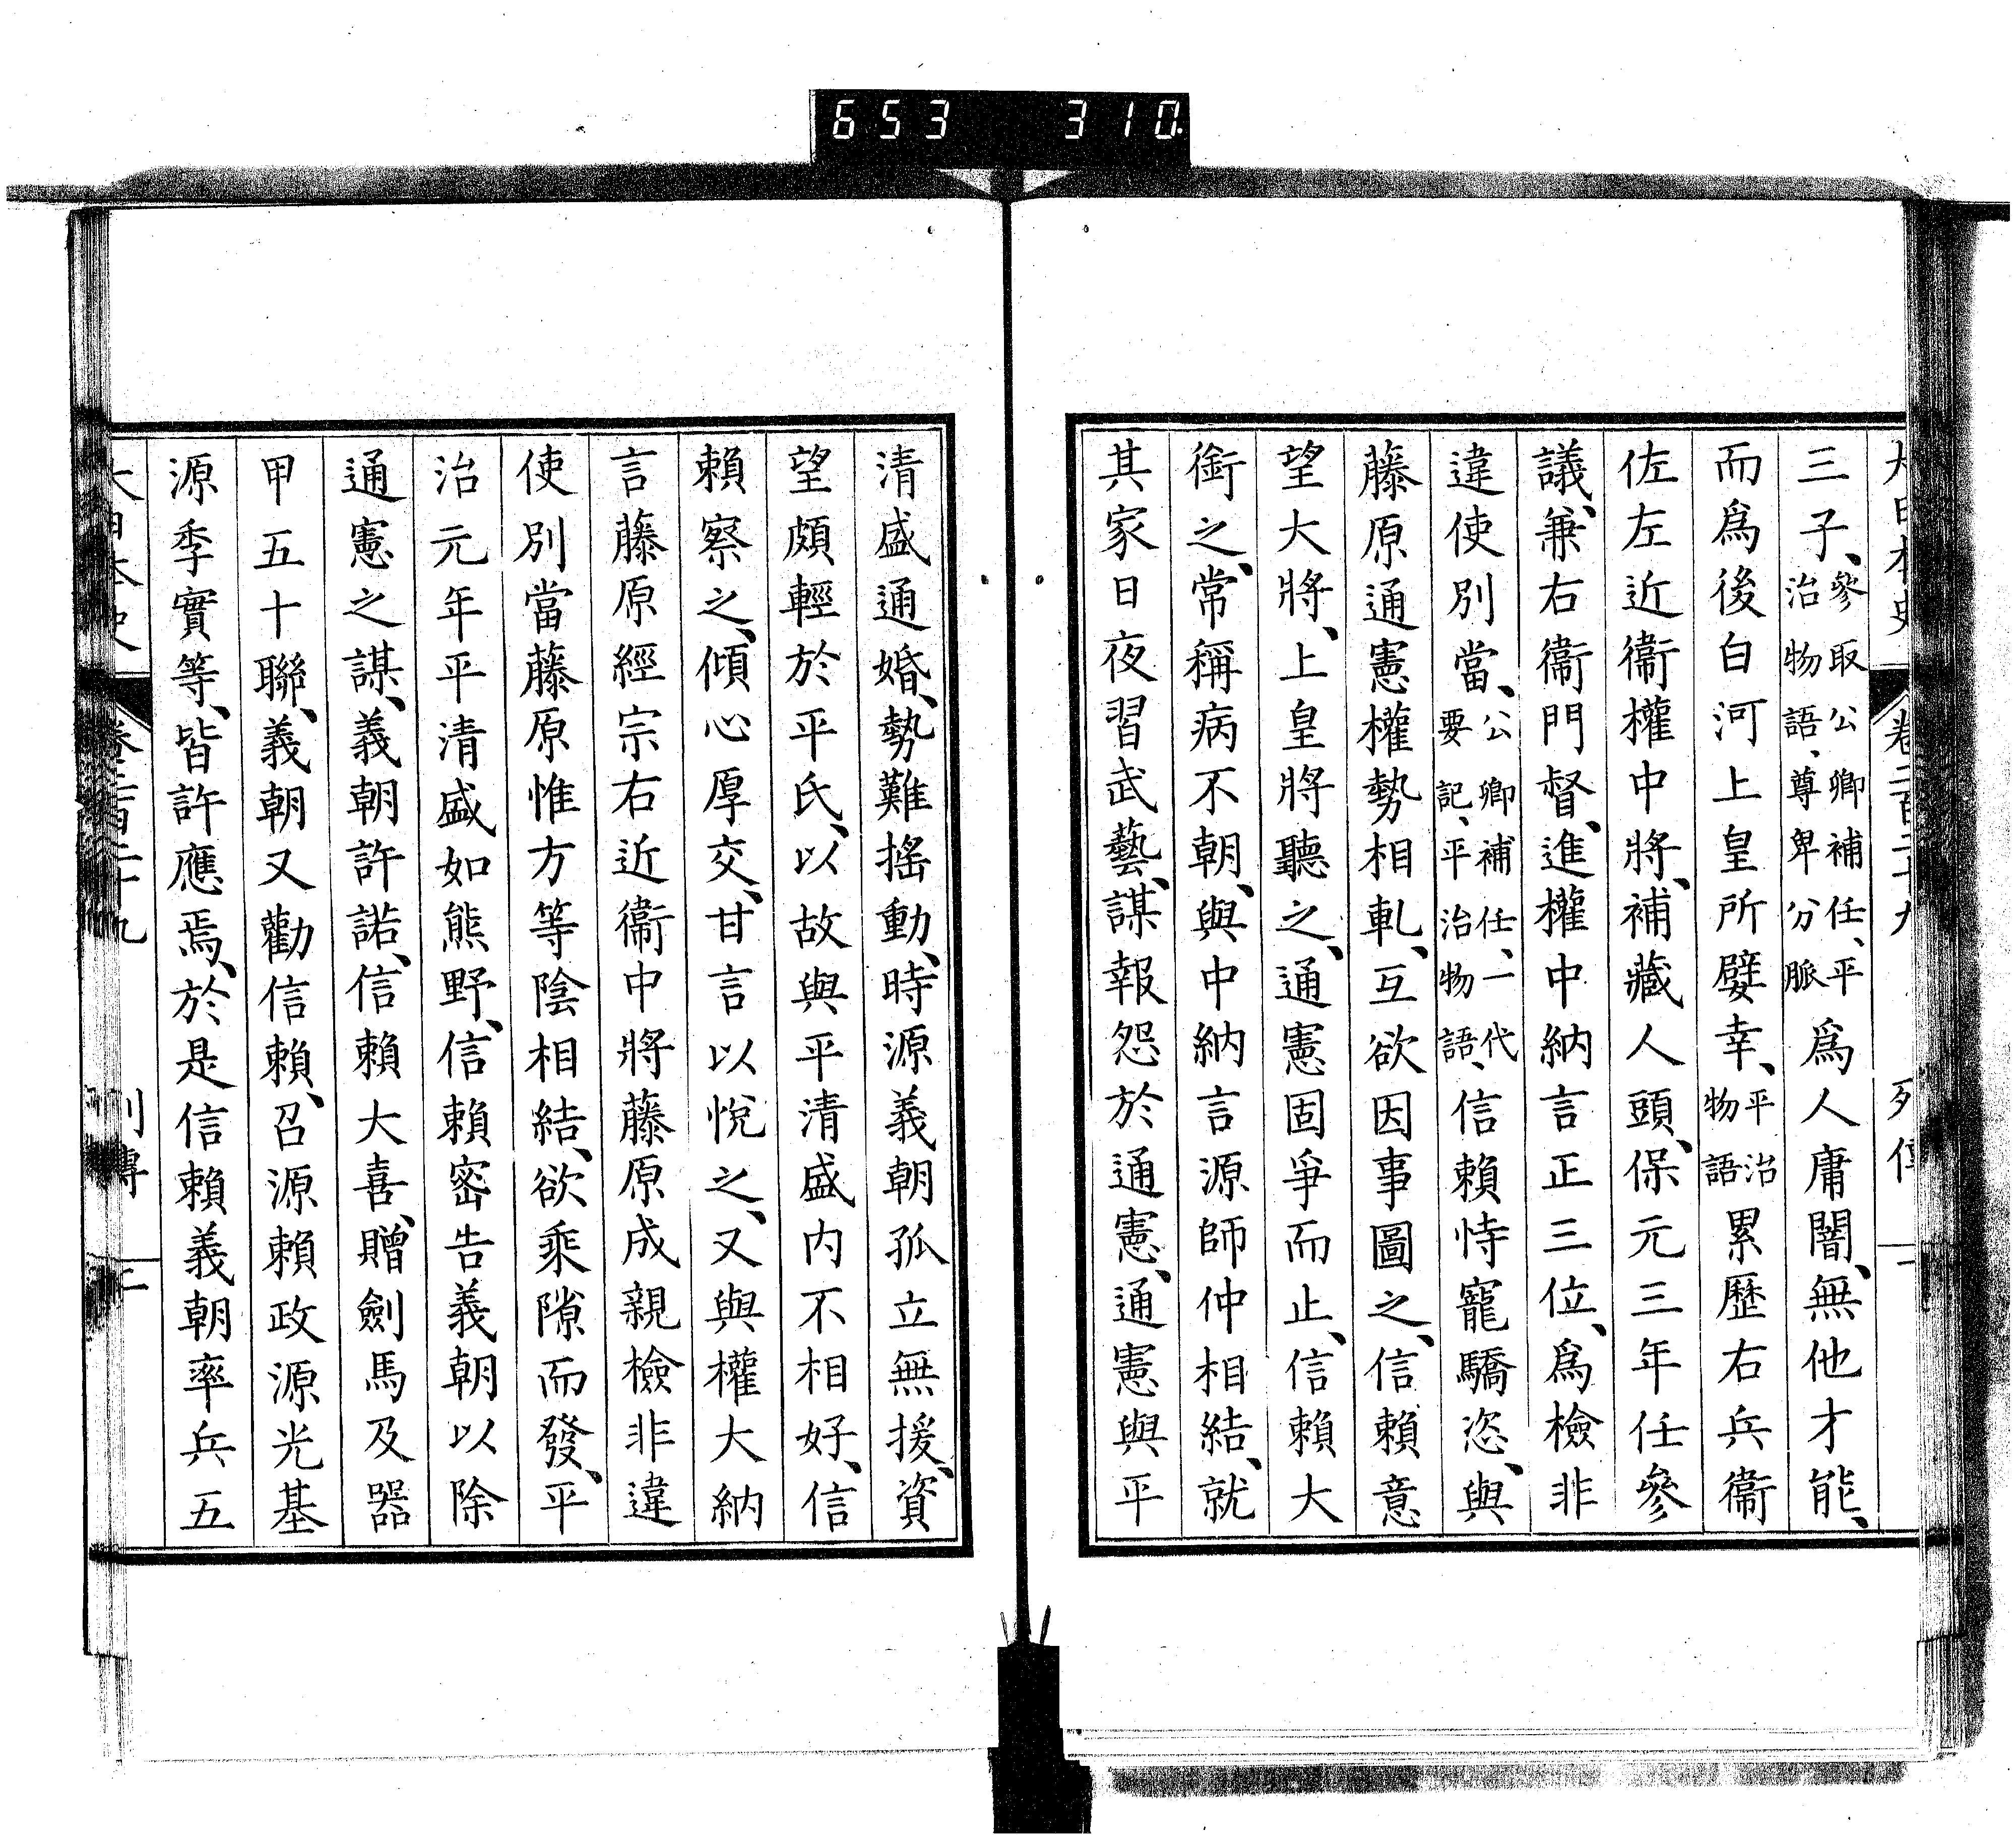 653 310
三子、參取公卿補任、平治物語、尊卑分脈爲人庸闇、無他才能、
而爲後白河上皇所嬖幸、平治物語累歷右兵衞
佐左近衞權中將、補藏人頭、保元三年任參
議、兼右衞門督、進權中納言正三位、爲檢非
違使別當、公卿補任、一代要記、平治物語、信賴恃寵驕恣、與
藤原通憲權勢相軋、互欲因事圖之、信賴意
望大將、上皇將聽之、通憲固爭而止、信賴大
銜之、常稱病不朝、與中納言源師仲相結、就
其家日夜習武藝、謀報怨於通憲、通憲與平
清盛通婚、勢難搖動、時源義朝孤立無援、資
望頗輕於平氏、以故與平清盛内不相好、信
賴察之、傾心厚交、甘言以悅之、又與權大納
言藤原經宗右近衞中將藤原成親檢非違
使別當藤原惟方等陰相結、欲乘隙而發、平
治元年平清盛如熊野、信賴密告義朝以除
通憲之謀、義朝許諾、信賴大喜、贈劍馬及器
甲五十聯、義朝又勸信賴、召源賴政源光基
源季實等、皆許應焉、於是信賴義朝率兵五